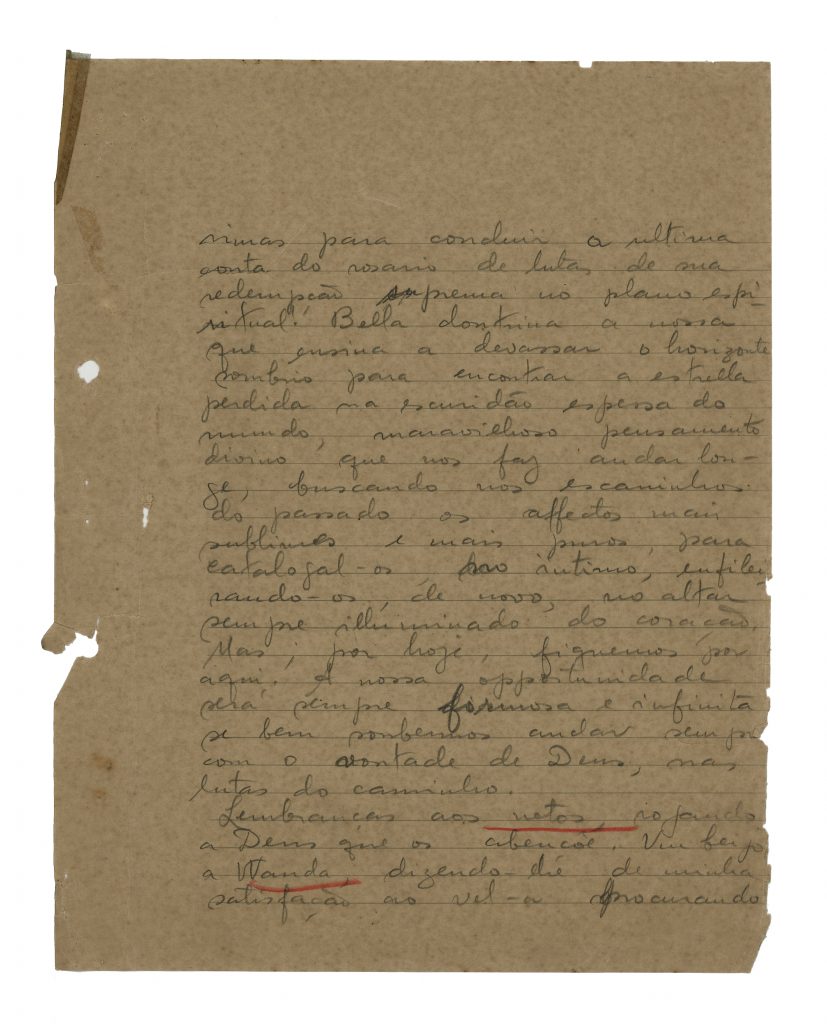 rimas para conduzir a ultima
conta do rosario de lutas de sua
redempção suprema no plano espi-
ritual! Bella doutrina a nossa
que ensina a devassar o horizonte
sombrio para encontrar a estrella
perdida na escuridão espessa do
mundo, maravilhoso pensamento
divino, que nos faz andar lon-
ge, buscando nos escaninhos
do passado os affectos mais
sublimes e mais puros, para
catalogal-os no intimo, enfilei
rando-os, de novo, no altar
sempre illuminado do coração.
Mas, por hoje, fiquemos por
aqui. A nossa opportunidade
será sempre formosa e infinita
se bem soubermos andar sempr
com a vontade de Deus, nas
lutas do caminho.
Lembranças aos netos, rogando
a Deus que os abençoe. Um beijo
a Wanda, dizendo-lhe de minha
satisfação ao vel-a procurando